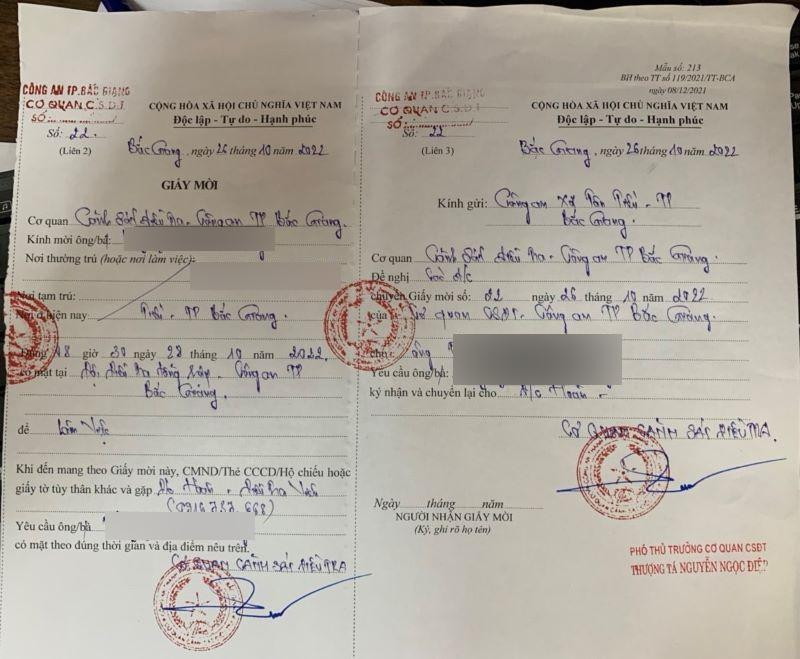 CÔNG AN TP.BẮC GIANG
CƠ QUAN C.S.Đ.T
SỐ
Số: 22
(Liên 2)
CỘNG HÒA XÃ HỘI CHỦ NGHĨA VIỆT NAM
Độc lập - Tự do - Hạnh phúc
Bắc Giang, ngày 26 tháng 10 năm 2022
GIẤY MỜI
Cơ quan Cảnh sát điều tra - Công an TP Bắc Giang.
Kính mời ông/bà:
Nơi thường trú (hoặc nơi làm việc):
Nơi tạm trú:
Nơi ở hiện nay Tiến - TP Bắc Giang.
Đúng 18 giờ 30 ngày 28 tháng 10 năm 2022.
có mặt tại Đội điều tra tổng hợp - Công an TP
Bắc Giang.
để Làm việc
Khi đến mang theo Giấy mời này, CMND/Thẻ CCCD/Hộ chiếu hoặc
giấy tờ tùy thân khác và gặp Đ/c Hoàn - Điều tra viên
Yêu cầu ông/bà
có mặt theo đúng thời gian và địa điểm nêu trên.
CƠ QUAN CẢNH SÁT ĐIỀU TRA
Mẫu số: 213
BH theo TT số 119/2021/TT-BCA
ngày 08/12/2021
CÔNG AN TP.BẮC GIANG
CƠ QUAN C.S.Đ.T
SỐ
Số: 22
(Liên 3)
CỘNG HÒA XÃ HỘI CHỦ NGHĨA VIỆT NAM
Độc lập - Tự do - Hạnh phúc
Bắc Giang, ngày 26 tháng 10 năm 2022
Kính gửi: Công an Xã Tân Tiến - TP
Bắc Giang.
Cơ quan Cảnh sát điều tra - Công an TP Bắc Giang.
Đề nghị các đ/c
chuyển Giấy mời số: 22 ngày 26 tháng 10 năm 2022
của Cơ quan CSĐT - Công an TP Bắc Giang.
cho ông
Yêu cầu ông/bà:
ký nhận và chuyển lại cho Đ/c Hoàn
CƠ QUAN CẢNH SÁT ĐIỀU TRA
Ngày tháng năm
NGƯỜI NHẬN GIẤY MỜI
(Ký, ghi rõ họ tên)
PHÓ THỦ TRƯỞNG CƠ QUAN CSĐT
THƯỢNG TÁ NGUYỄN NGỌC ĐIỆP